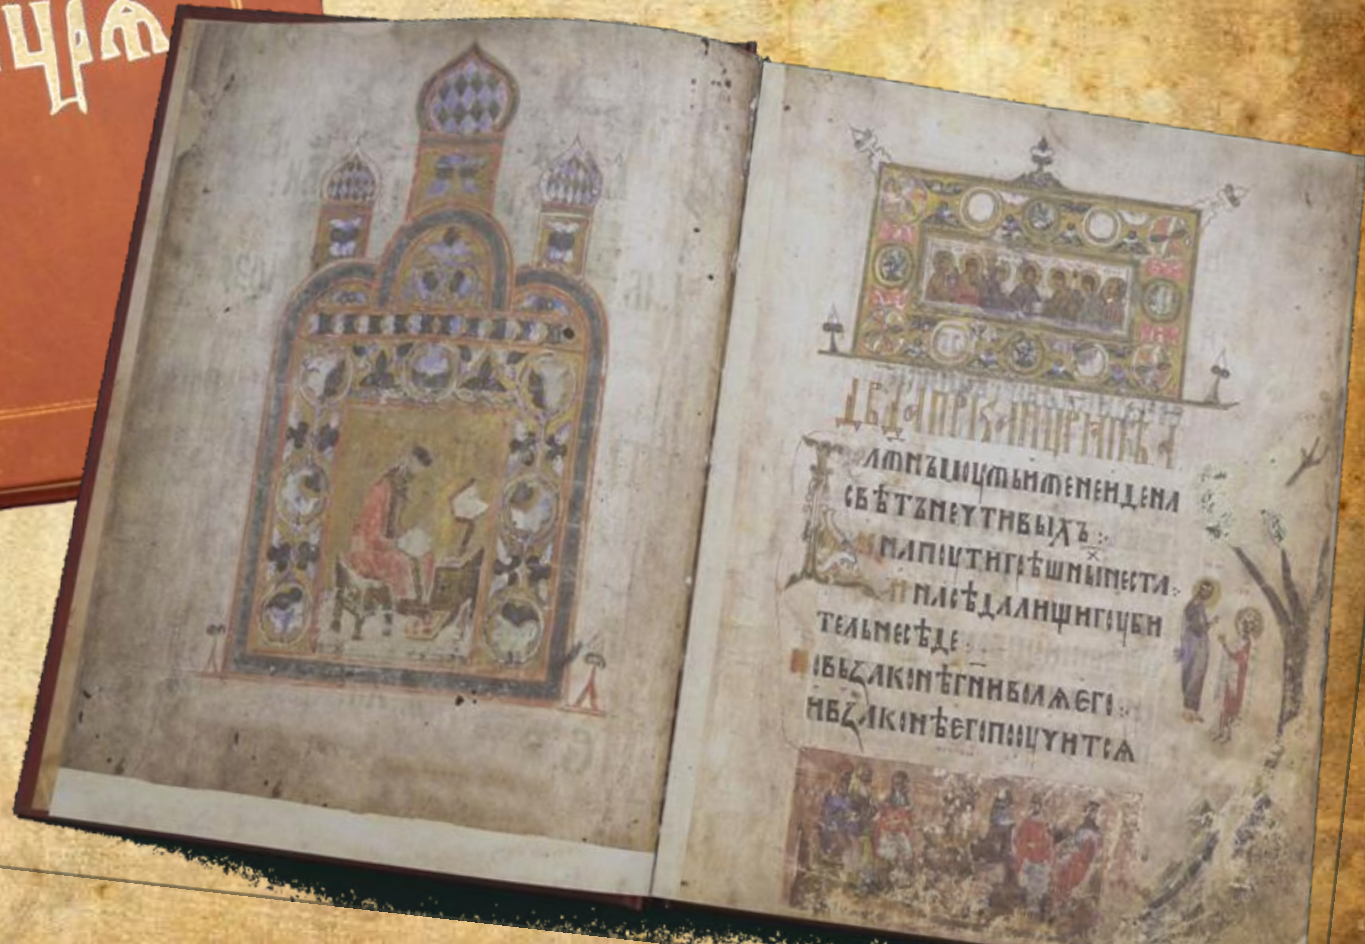 ДВДА ПРРКА И ЦРѦ ПѢ А
БЛЖНЪ МОУЖЬ ИЖЕ НЕ ИДЕ НА
СВѢТЪ НЕЧТИВЫХЪ :·
И НА ПОУТИ ГРѢШНЫ НЕ СТА :
И НА СѢДАЛИЩИ ГОУБИ
ТЕЛЬ НЕ СѢДЕ :
ВЪ ЗАКОНѢ ГНИ ВОЛѦ ЕГО :·
И В ЗАКОНѢ ЕГО ПООУЧИТСѦ